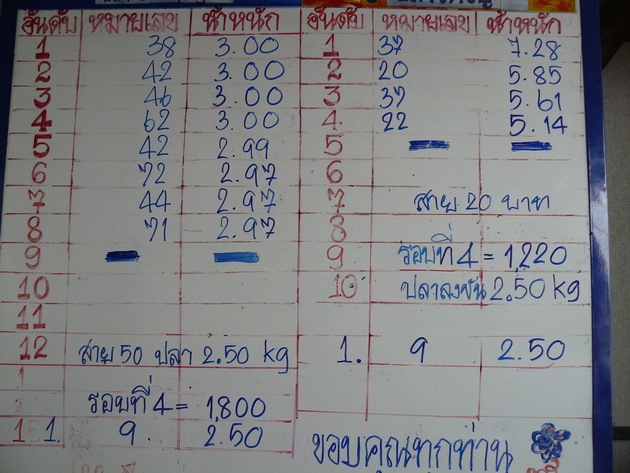 อันดับ หมายเลข น้ำหนัก
1 38 3.00
2 42 3.00
3 46 3.00
4 62 3.00
5 42 2.99
6 72 2.97
7 44 2.97
8 71 2.97
9
10
11
12 สาย 50 ปลา 2.50 kg
รอบที่ 4 = 1,800
1. 9. 2.50
อันดับ หมายเลข น้ำหนัก
1 37 7.28
2 20 5.85
3 37 5.61
4 22 5.14
5
6
7 สาย 20 บาท
8
9 รอบที่ 4 = 1,220
10 ปลาลงขัน 2.50 kg
1. 9 2.50
ขอบคุณทุกท่าน